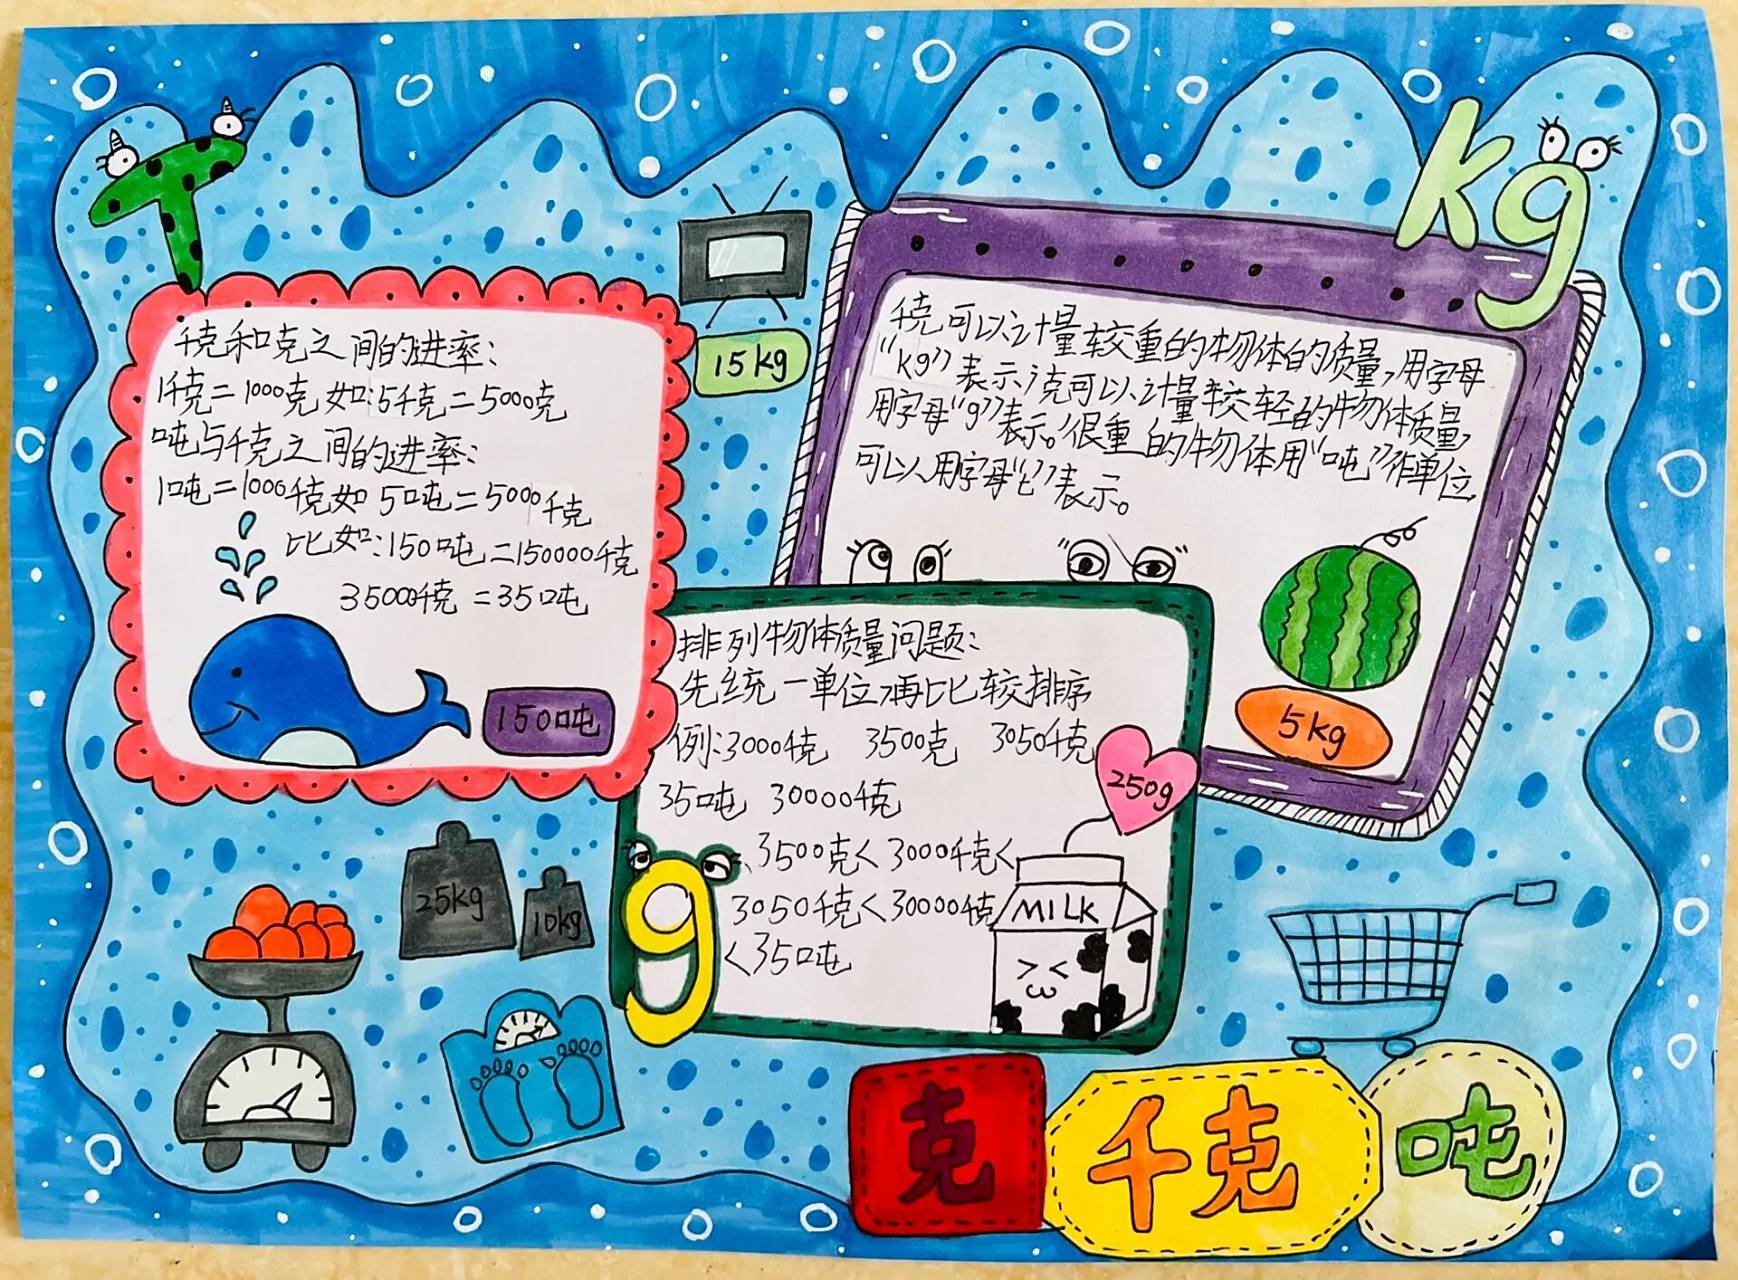 T
kg
千克和克之间的进率:
1千克=1000克如:5千克=5000克
吨与千克之间的进率:
1吨=1000千克如 5吨=5000千克
比如:150吨=150000千克
35000千克=35吨
150吨
15kg
千克可以计量较重的物体的质量,用字母
“kg”表示,克可以计量较轻的物体质量,
用字母“g”表示。很重的物体用“吨”作单位
可以用字母“t”表示。
5kg
排列物体质量问题:
先统一单位,再比较排序
例:3000千克 3500克 3050千克
35吨 30000千克
3500克<3000千克<
3050千克<30000千克
<35吨
250g
MILK
g
25kg
10kg
克 千克 吨